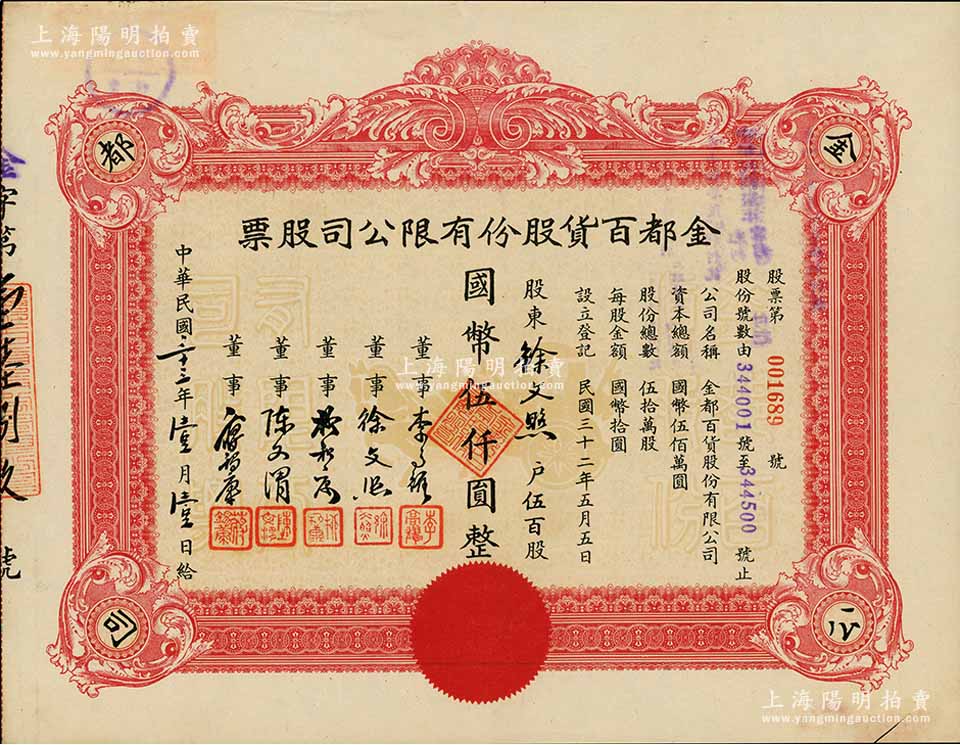 上海陽明拍賣
www.yangmingauction.com
金
都
公
司
金都百貨股份有限公司股票
股票第 001689 號
股份號數由344001號至344500號止
公司名稱 金都百貨股份有限公司
資本總額 國幣伍佰萬圓
股份總數 伍拾萬股
每股金額 國幣拾圓
設立登記 民國三十二年五月五日
股東 徐文熙 戶伍百股
國幣伍仟圓整
董事 李
董事 徐文熙
董事
董事 陈文渭
董事
中華民國三十三年壹月壹日給
金字第 壹陸捌玖 號
上海陽明拍賣
www.yangmingauction.com
上海陽明拍賣
www.yangmingauction.com